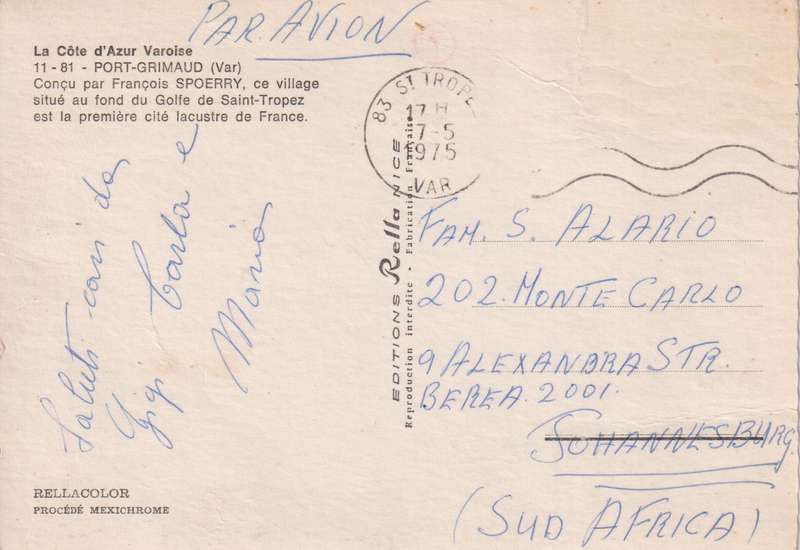 PAR AVION
La Côte d'Azur Varoise
11 - 81 - PORT-GRIMAUD (Var)
Conçu par François SPOERRY, ce village
situé au fond du Golfe de Saint-Tropez
est la première cité lacustre de France.
83 ST TROPE
17 H
7-5
1975
VAR
Saluti cari da
Gigi Carla e
Maria
EDITIONS Rella NICE
Reproduction interdite - Fabrication Française
FAM. S. ALARIO
202. MONTE CARLO
9 ALEXANDRA STR.
BEREA. 2001.
JOHANNESBURG
(SUD AFRICA)
RELLACOLOR
PROCÉDÉ MEXICHROME